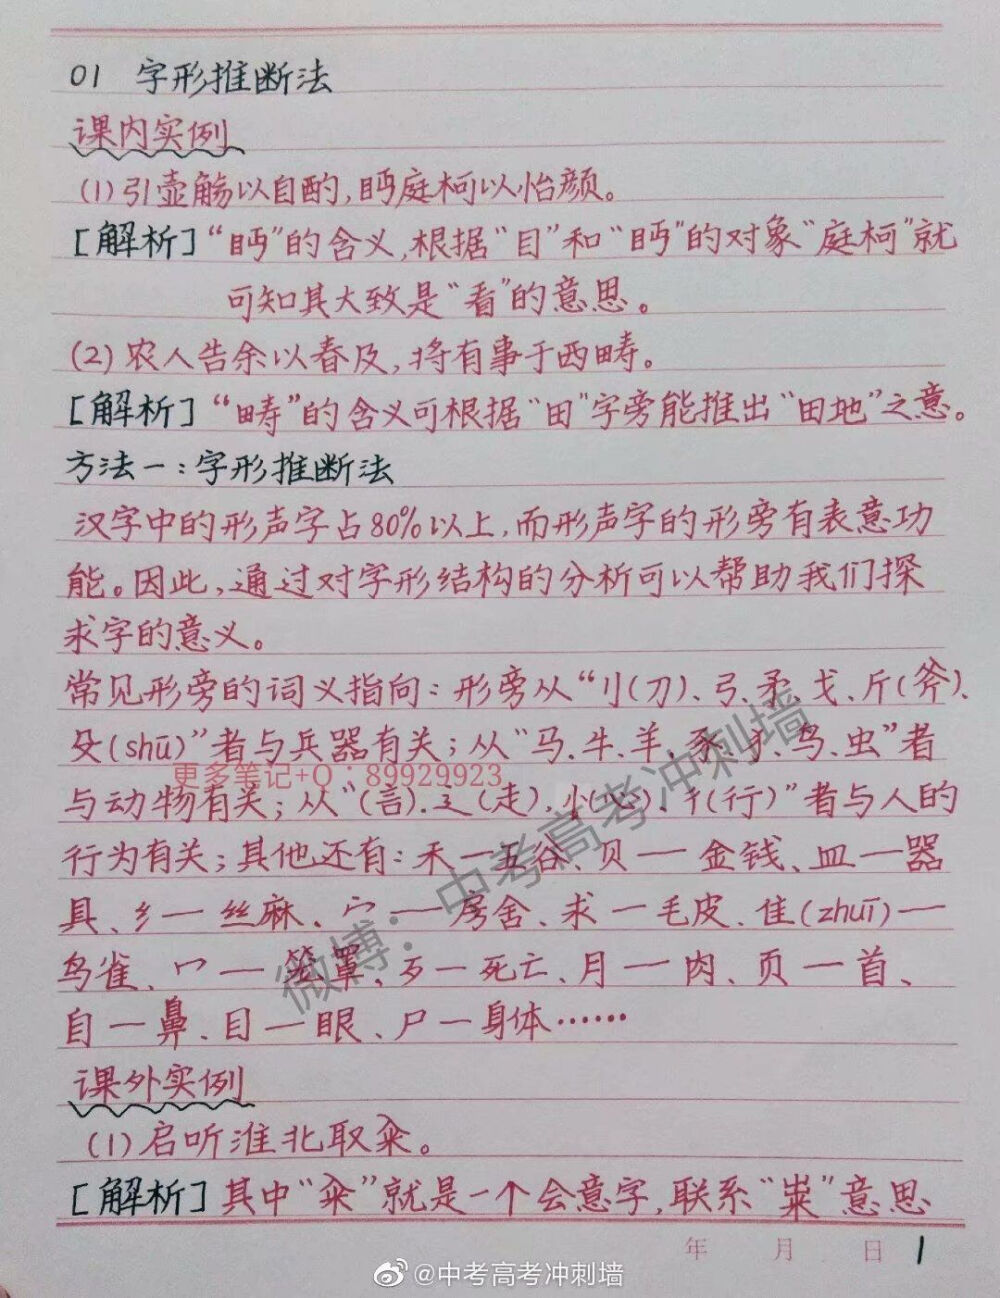 01 字形推断法
课内实例
(1)引壶觞以自酌,眄庭柯以怡颜。
[解析]“眄”的含义,根据“目”和“眄”的对象“庭柯”就
可知其大致是“看”的意思。
(2)农人告余以春及,将有事于西畴。
[解析]“畴”的含义可根据“田”字旁能推出“田地”之意。
方法一:字形推断法
汉字中的形声字占80%以上,而形声字的形旁有表意功
能。因此,通过对字形结构的分析可以帮助我们探
求字的意义。
常见形旁的词义指向:形旁从“刂(刀)、弓、矛、戈、斤(斧)、
殳(shū)”者与兵器有关;从“马、牛、羊、豕、犭、鸟、虫”者
更多笔记+Q:89929923
与动物有关;从“(言)、辶(走)、忄(心)、彳(行)”者与人的
行为有关;其他还有:禾一五谷、贝一金钱、皿一器
具、纟一丝麻、宀一房舍、求一毛皮、隹(zhuī)一
鸟雀、冖一笼罩、歹一死亡、月一肉、页一首、
自一鼻、目一眼、尸一身体……
微博:中考高考冲刺墙
课外实例
(1)启听淮北取籴。
[解析]其中“籴”就是一个会意字,联系“粜”意思
年 月 日 1
@中考高考冲刺墙